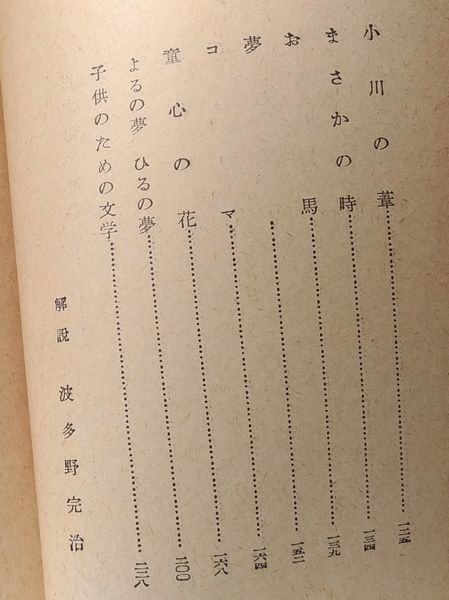 小川の葦……一二五
まさかの時……一三四
お馬……一三九
夢……一五二
コマ……一六四
童心の花……一六八
よるの夢 ひるの夢……二〇〇
子供のための文学……二二八
解説 波多野完治